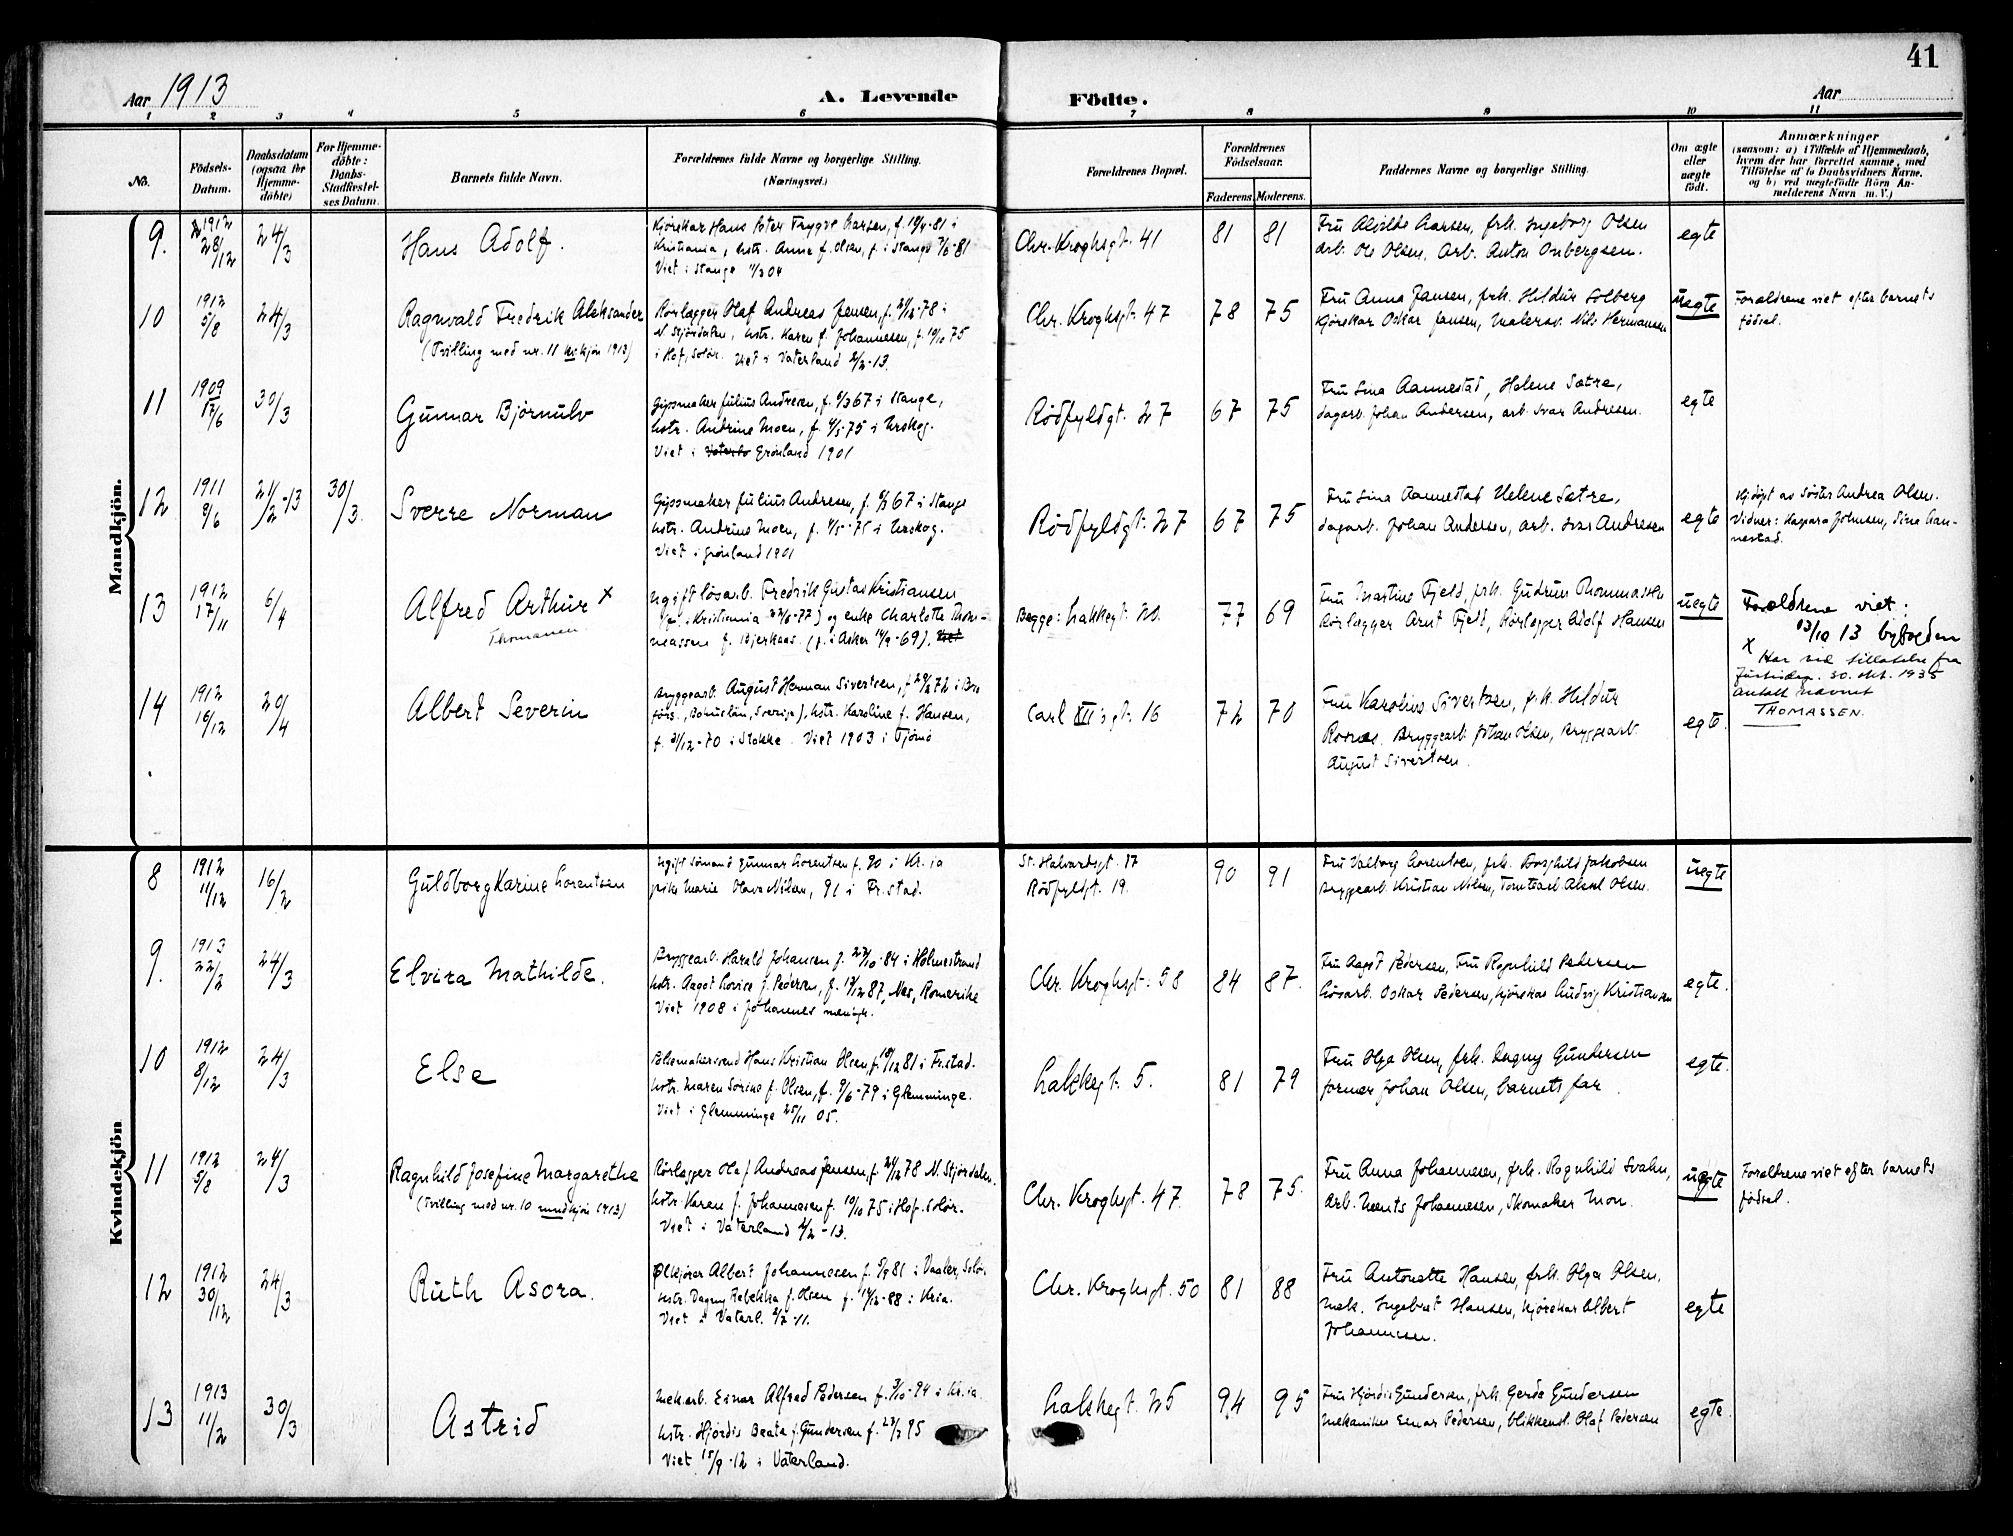 41
Aar 1913
A. Levende Födte.
Aar
1 2 3 4 5 6 7 8 9 10 11
No.
Födsels-Datum.
Daabsdatum (ogsaa for Hjemme-döbte)
For Hjemme-döbte: Daabs-Stadfæstel-ses Datum.
Barnets fulde Navn.
Forældrenes fulde Navne og borgerlige Stilling.
(Næringsvei.)
Forældrenes Bopæl.
Forældrenes Födselsaar.
Faderens. Moderens.
Faddernes Navne og borgerlige Stilling.
Om ægte eller uægte födt.
Anmærkninger
(saasom: a) i Tilfælde af Hjemmedaab,
hvem der har forrettet samme, med
Tilföielse af to Daabsvidners Navne.
og b) ved uægtefödte Börn An-
melderens Navn m. V.)
Mandkjön.
9. 1912 28/12 24/3 Hans Adolf.
Kjørskar Hans Peter Trygve Larsen, f. 18/4-81 i
Kristiania, hstr. Anna f. Olsen, f. i Stange 7/6-81
Viet i Stange 1/3 04
Chr. Kroghsgt. 41 81 81
Fru Alvilde Larsen, frk. Ingeborg Olsen
Arb. Ole Olsen, Arb. Anton Onbergsen.
egte
10 1912 5/8 24/3 Ragnvald Fredrik Aleksander
(Tvilling med nr. 11 kvkjön 1913)
Rørlægger Olaf Andreas Jensen, f. 21/12-78 i
N. Stjördalen, hstr. Karen f. Johannesen, f. 19/10 75
i Hof, Solör. Viet i Vaterland 2/2-13.
Chr. Kroghsgt. 47 78 75
Fru Anna Jansen, frk. Hildur Solberg
Kjørskar Oskar Jansen, Malersv. Nils Hermansen
uegte
Foraldrene viet efter barnets
födsel.
11 1909 17/6 30/3 Gunnar Björnulv
Gipsmaker Julius Andresen, f. 9/3 67 i Stange,
hstr. Andrine Moen, f. 4/5-75 i Urskog.
Viet i Grönland 1901
Rødfyldgt. 27 67 75
Fru Lina Aannestad, Helene Sætre,
dagarb. Johan Andersen, arb. Ivar Andresen.
egte
12 1911 9/6 21/2-13 30/3. Sverre Norman
Gipsmaker Julius Andresen, f. 9/3 67 i Stange
hstr. Andrine Moen, f. 4/5-75 i Urskog.
Viet i Grönland 1901
Rødfyldgt. 27 67 75
Fru Lina Aannestad Helene Sætre,
dagarb. Johan Andersen, arb. Ivar Andresen
egte
Hjdöpt av Söster Andrea Olsen.
Vidner: Kaspara Johnsen, Lina Aan-
nestad.
13 1912 17/11 6/4 Alfred Arthur x
Thomassen
Ugift lösarb. Fredrik Gustav Kristiansen
(f. i Kristiania 22/6-77) og enke Charlotte Thom-
massen f. Bjerkaas. (f. i Asker 14/9-69).
Begge: Lakkegt. 20. 77 69
Fru Martine Fjeld, frk. Gudrun Thommassen
Rörlægger Arnt Fjeld, Rörlegger Adolf Hansen
uegte
Forældrene viet:
13/10 13 byfogden
x Har ved tillatelse fra
Justisdep. 30. okt. 1935
antatt navnet
THOMASSEN.
14 1912 16/12 20/4 Albert Severin
Bryggearb. August Herman Sivertsen, f. 29/2 72 i Bro
förs., Bohuslän, Sverige), hstr. Karoline f. Hansen,
f. 31/12-70 i Stokke. Viet 1903 i Tjömö
Carl XII's gt. 16 72 70
Fru Karoline Sivertsen, frk. Hildur
Bryggearb. Johan Olsen, Bryggearb.
August Sivertsen.
egte.
Kvindekjön
8 1912 11/12 16/2 Guldborg Karine Lorentsen
Ugift sömand Gunnar Lorentsen f. 90 i Kr.ia
pike Marie Olava Nilsen, 91 i Fr.stad.
St. Halvardsgt. 17
Rödfyldgt. 19. 90 91
Fru Valborg Lorentsen, frk. Borghild Jakobsen
Bryggearb. Kristian Nilsen, Tomtearb. Aksel Olsen.
uegte
9. 1913 22/2 24/3 Elvira Mathilde.
Bryggearb. Harald Johansen f. 27/10-84 i Holmestrand
hstr. Aagot Lovise f. Pedersen, f. 19/12 87, Nes, Romerike
Viet 1908 i Johannes menigh.
Chr. Kroghsgt. 58 84 87.
Fru Aagot Pedersen, Fru Ragnhild Pedersen
Lösarb. Oskar Pedersen, kjörskar Ludvig Kristiansen
egte.
10 1912 8/12 24/3 Else
Pölsemakersvend Hans Kristian Olsen, f. 19/12 81 i Fr.stad.
hstr. Maren Sörine f. Olsen, f. 9/6-79 i Glemminge.
Viet i Glemminge 25/11 05.
Lakkegt. 5. 81 79
Fru Olga Olsen, frk. Dagny Gundersen
former Johan Olsen, barnets far
egte.
11 1912 5/8 24/3 Ragnhild Josefine Margarethe
(Tvilling med nr. 10 mandkjön 1913)
Rörlægger Olaf Andreas Jensen, f. 21/12 78 N. Stjördalen.
hstr. Karen f. Johannesen f. 19/10 75 i Hof. Solör.
Viet i Vaterland 2/2-13.
Chr. Kroghsgt. 47. 78 75.
Fru Anna Johannesen, frk. Ragnhild Svahn,
Arb. Johannesen, Skomaker Mon.
uegte
Foraldrene viet efter barnets
födsel.
12 1912 30/12 24/3 Ruth Asora.
Ølkjörer Albert Johannesen f. 9/9 81 i Vaaler, Solör.
hstr. Dagny Rebekka f. Olsen f. 14/12-88 i Kria.
Viet i Vaterl. 2/7-11.
Chr. Kroghsgt. 50 81 88
Fru Antonette Hansen, frk. Olga Olsen.
Mek. Ingebret Hansen, kjörskar Albert
Johannesen.
egte
13 1913 11/2 30/3 Astrid
Mek.arb. Einar Alfred Pedersen f. 3/10-94 i Kr.ia.
hstr. Hjördis Beata f. Gundersen f. 23/2 95
Viet 15/9-12 i Vaterland.
Lakkegt. 25 94 95
Fru Hjördis Gundersen, frk. Gerda Gundersen
Mekaniker Einar Pedersen, blikkensl. Olaf Pedersen
egte.